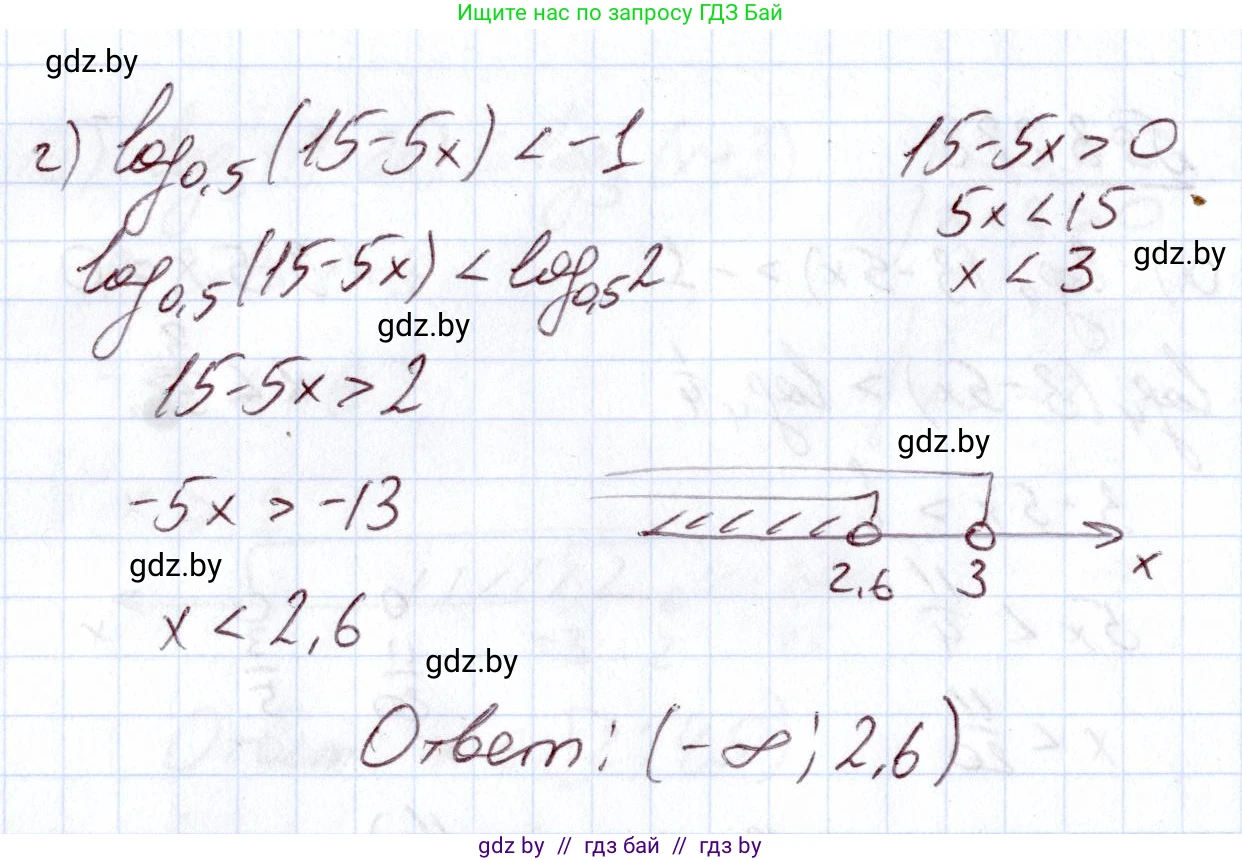 Ищите нас по запросу ГДЗ Бай
gdz.by
г) log0,5 (15-5x) < -1
15-5x > 0
5x < 15
log0,5 (15-5x) < log0,5 2
x < 3
gdz.by
gdz.by
15-5x > 2
gdz.by
-5x > -13
2,6 3 x
gdz.by
x < 2,6
gdz.by
Ответ: (-∞; 2,6)
gdz.by // гдз бай // gdz.by